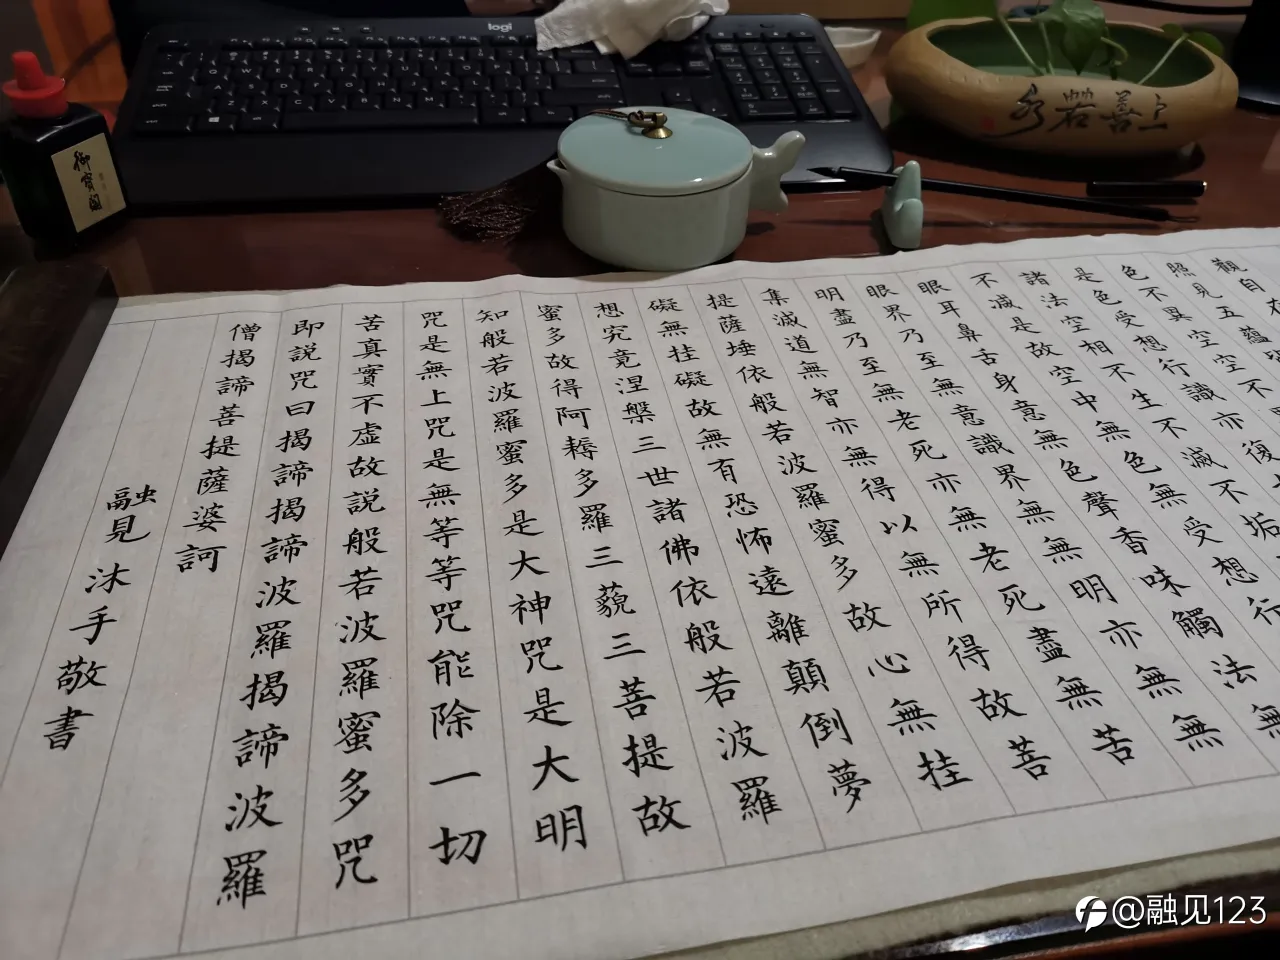 logi
御寶閣
上善若水
觀自在
照見五蘊
色不異空空不
是色受想行識亦復
諸法空相不生不滅不垢
不減是故空中無色無受想行
眼耳鼻舌身意無色聲香味觸法無
眼界乃至無意識界無無明亦無無
明盡乃至無老死亦無老死盡無苦
集滅道無智亦無得以無所得故菩
提薩埵依般若波羅蜜多故心無挂
礙無挂礙故無有恐怖遠離顛倒夢
想究竟涅槃三世諸佛依般若波羅
蜜多故得阿耨多羅三藐三菩提故
知般若波羅蜜多是大神咒是大明
咒是無上咒是無等等咒能除一切
苦真實不虛故說般若波羅蜜多咒
即說咒曰揭諦揭諦波羅揭諦波羅
僧揭諦菩提薩婆訶
融見沐手敬書
@融见123